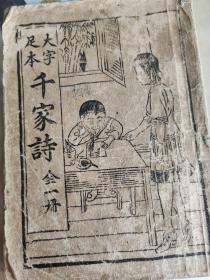 大字
足本
千家詩
全一冊